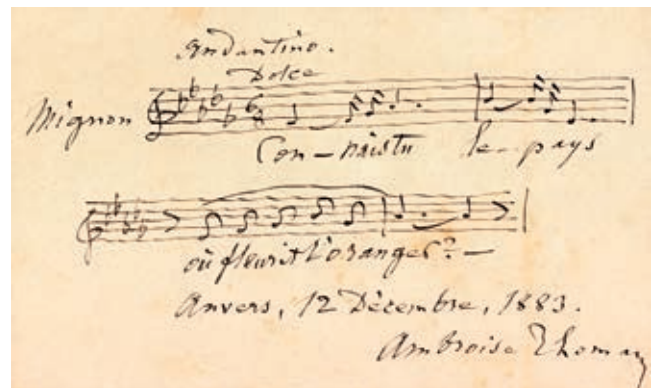 Andantino.
Dolce
Mignon
Con-naistu le-pays
où fleurit l'oranger?-
Anvers, 12 Décembre, 1883.
Ambroise Thomas